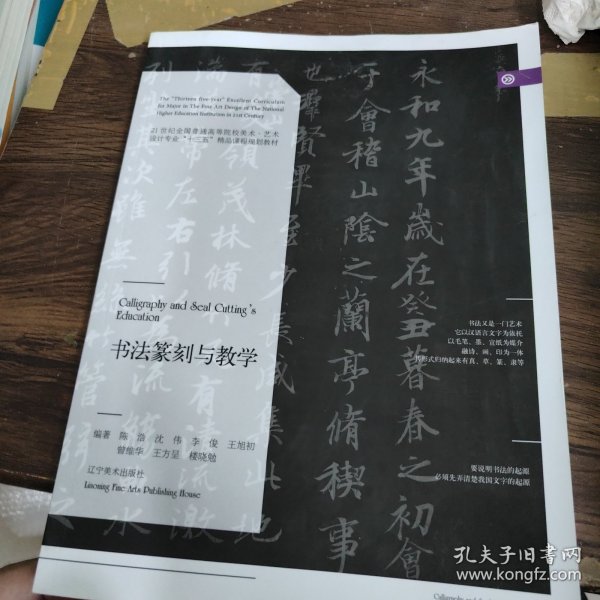 The "Thirteen five-year" Excellent Curriculum
for Major in The Fine Art Design of The National
Higher Education Institution in 21st Century
21世纪全国普通高等院校美术·艺术
设计专业"十三五"精品课程规划教材
Calligraphy and Seal Cutting's
Education
书法篆刻与教学
编著 陈浩 沈伟 李俊 王旭初
曾维华 王方呈 楼晓勉
辽宁美术出版社
Liaoning Fine Arts Publishing House
永和九年歲在癸丑暮春之初會
于會稽山陰之蘭亭脩稧事
也羣賢畢至少長咸集此地
領茂林脩
帶左右引
書法又是一门艺术
它以汉语言文字为依托
以毛笔、墨、宣纸为媒介
融诗、画、印为一体
其形式归纳起来有真、草、篆、隶等
要说明书法的起源
必须先弄清楚我国文字的起源
Calligraphy and
孔夫子旧书网
www.kongfz.com